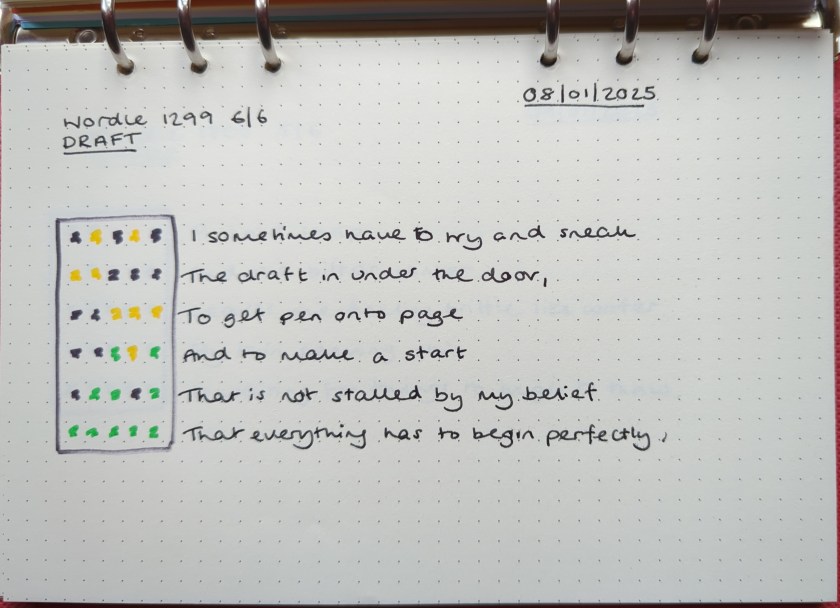 08/01/2025
Wordle 1299 6/6
DRAFT
I sometimes have to try and sneak
The draft in under the door,
To get pen onto page
And to make a start
That is not stalled by my belief
That everything has to begin perfectly,